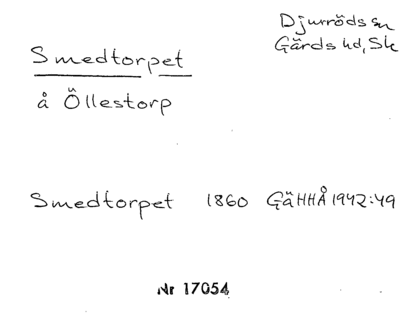 Djurröds sn
Gärds hd, Sk
Smedtorpet
å Öllestorp
Smedtorpet 1860 GäHHÅ 1942:49
Nr 17054